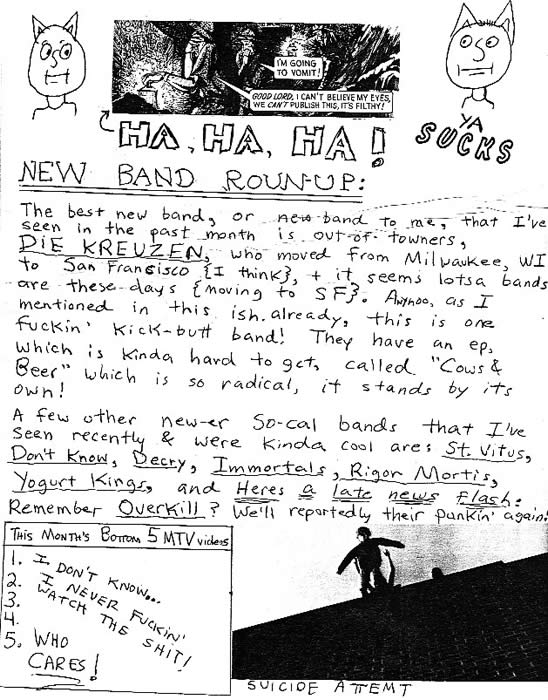 I'M GOING
TO VOMIT!
GOOD LORD, I CAN'T BELIEVE MY EYES,
WE CAN'T PUBLISH THIS, IT'S FILTHY!
HA, HA, HA!
YA
SUCKS
NEW BAND ROUN-UP:
The best new band, or new band to me, that I've
seen in the past month is out-of-towners,
DIE KREUZEN, who moved from Milwaukee, WI
to San Francisco {I think}, + it seems lotsa bands
are these days {moving to SF}. Anyhoo, as I
mentioned in this ish. already, this is one
fuckin' kick-butt band! They have an ep,
which is kinda hard to get, called "Cows &
Beer" which is so radical, it stands by its
own!
A few other new-er So-cal bands that I've
seen recently & were kinda cool are: St. Vitus,
Don't Know, Decry, Immortals, Rigor Mortis,
Yogurt Kings, and Heres a late news flash:
Remember Overkill? We'll reportedly their punkin' again!
This Month's Bottom 5 MTV videos
1. I DON'T KNOW...
2. I NEVER FUCKIN'
3. WATCH THE SHIT!
4.
5. WHO
CARES!
SUICIDE ATTEMT